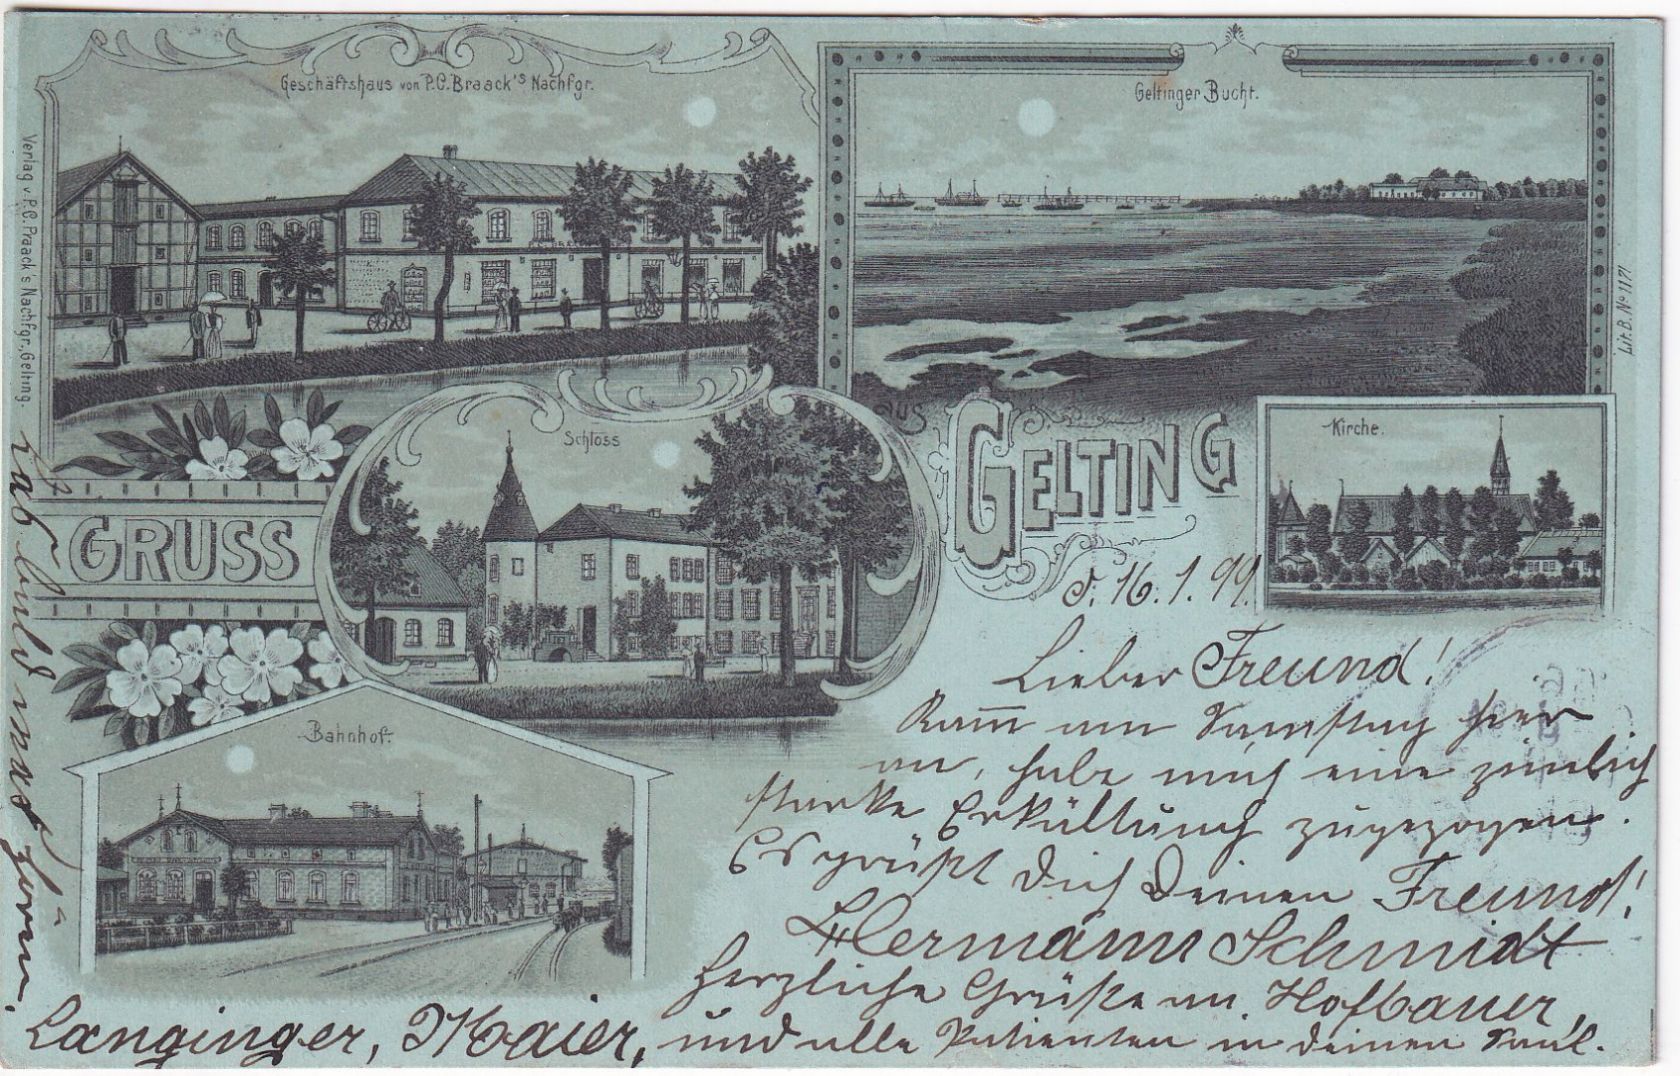 Geschäftshaus von P.C. Braack's Nachfgr.
Geltinger Bucht.
Verlag v. P.C. Praack's Nachfgr. Gelting.
Lit. B. No 1171
GRUSS
aus
GELTING
Schloss
Kirche.
Bahnhof.
d. 16.1.99.
Lieber Freund!
Kam am Samstag hier
an, habe mich eine ziemlich
starke Erkältung zugezogen.
Es grüßt Dich Deinen Freund!
Hermann Schmidt
Herzliche Grüße an Hofbauer,
Langinger, Maier, und alle Patienten in deinen Saal.
Laß bald was hören.